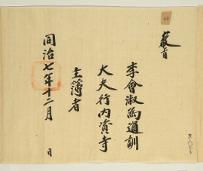 敎旨
李會淑爲通訓
大夫行內資寺
主簿者
同治七年十二月 日